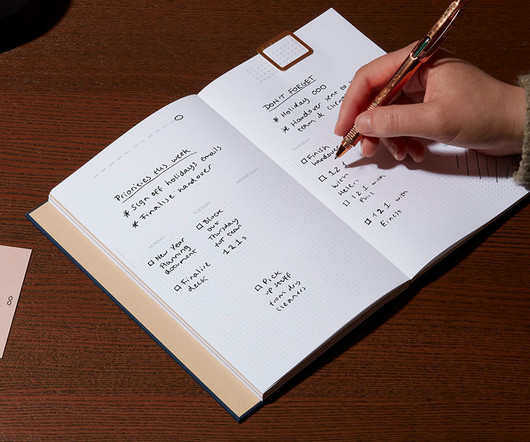 Priorities this week
* Sign off holidays emails
* Finalise handover
New Year
Planning
document
Finalise
deck
Block
out
Thursday
for team
121s
Pick
up stuff
from dry
cleaners
DON'T FORGET
* Holiday OOO
* Handover sent to
team &
Finish
handover
12
with
Helen
121 with
Phil
121 with
Eimish
8